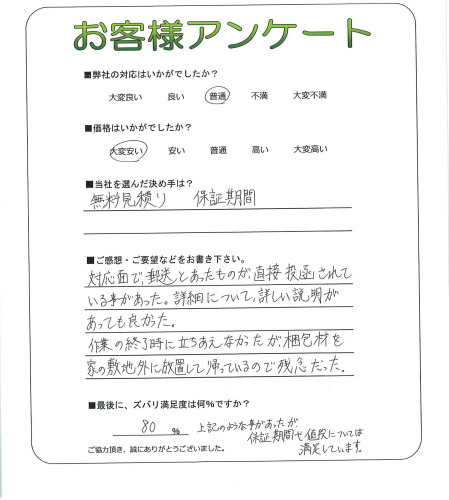 お客様アンケート
■弊社の対応はいかがでしたか？
大変良い 良い 普通 不満 大変不満
■価格はいかがでしたか？
大変安い 安い 普通 高い 大変高い
■当社を選んだ決め手は？
無料見積り 保証期間
■ご感想・ご要望などをお書き下さい。
対応面で、郵送とあったものが直接投函されて
いる事があった。詳細について、詳しい説明が
あっても良かった。
作業の終了時に立ちあえなかったが梱包材を
家の敷地外に放置して帰っているので残念だった。
■最後に、ズバリ満足度は何％ですか？
80 % 上記のような事があったが、
保証期間や値段については
満足しています。
ご協力頂き、誠にありがとうございました。